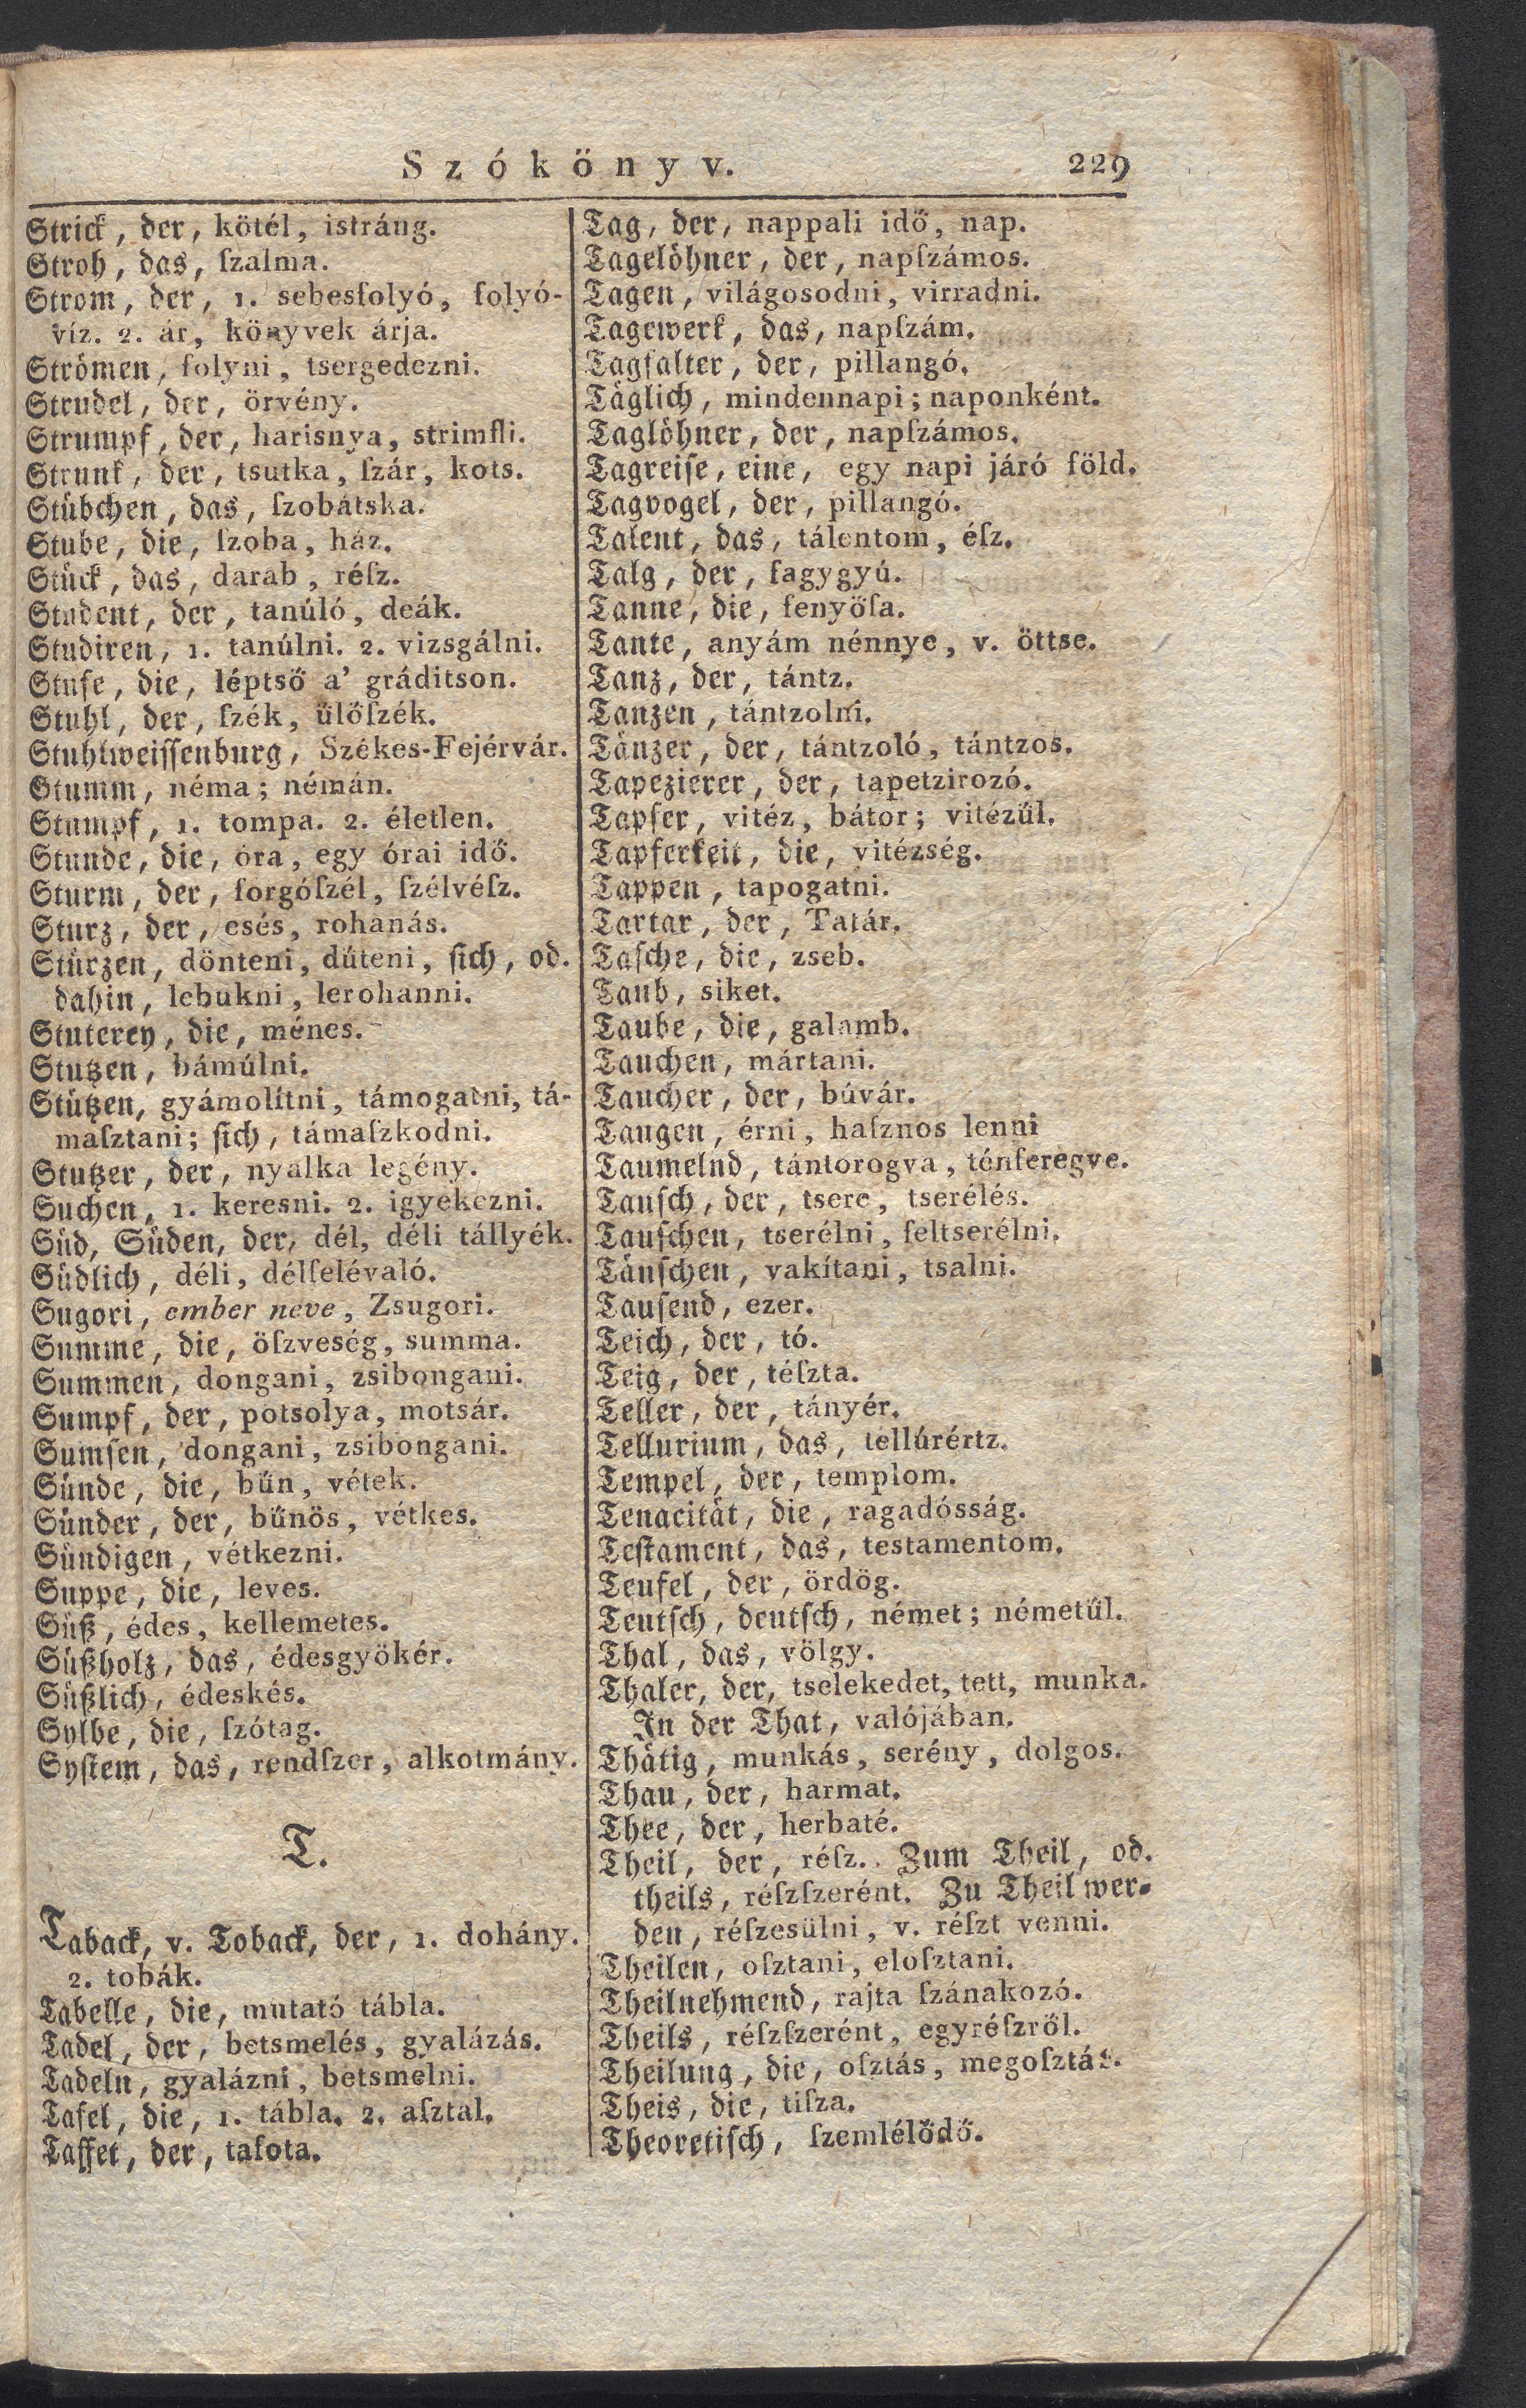 Szókönyv. 229
Strick, der, kötél, istráng.
Stroh, das, ſzalma.
Strom, der, 1. sebesfolyó, folyó-
víz. 2. ár, könyvek árja.
Strömen, folyni, tsergedezni.
Strudel, der, örvény.
Strumpf, der, harisnya, strimfli.
Strunk, der, tsutka, ſzár, kots.
Stübchen, das, ſzobátska.
Stube, die, ſzoba, ház.
Stück, das, darab, réſz.
Student, der, tanúló, deák.
Studiren, 1. tanúlni. 2. vizsgálni.
Stufe, die, léptső a' gráditson.
Stuhl, der, ſzék, űlőſzék.
Stuhlweiſſenburg, Székes-Fejérvár.
Stumm, néma; némán.
Stumpf, 1. tompa. 2. életlen.
Stunde, die, óra, egy órai idő.
Sturm, der, forgóſzél, ſzélvéſz.
Sturz, der, esés, rohanás.
Stürzen, dönteni, dúteni, ſich, od.
dahin, lebukni, lerohanni.
Stuterey, die, ménes.
Stutzen, bámúlni.
Stützen, gyámolítni, támogatni, tá-
maſztani; ſich, támaſzkodni.
Stutzer, der, nyalka legény.
Suchen, 1. keresni. 2. igyekezni.
Süd, Süden, der, dél, déli tállyék.
Südlich, déli, délfelévaló.
Sugori, ember neve, Zsugori.
Summe, die, öſzveség, summa.
Summen, dongani, zsibongani.
Sumpf, der, potsolya, motsár.
Sumſen, dongani, zsibongani.
Sünde, die, bűn, vétek.
Sünder, der, bűnös, vétkes.
Sündigen, vétkezni.
Suppe, die, leves.
Süß, édes, kellemetes.
Süßholz, das, édesgyökér.
Süßlich, édeskés.
Sylbe, die, ſzótag.
Syſtem, das, rendſzer, alkotmány.
T.
Taback, v. Toback, der, 1. dohány.
2. tobák.
Tabelle, die, mutató tábla.
Tadel, der, betsmelés, gyalázás.
Tadeln, gyalázni, betsmelni.
Tafel, die, 1. tábla. 2. aſztal.
Taffet, der, tafota.
Tag, der, nappali idő, nap.
Tagelöhner, der, napſzámos.
Tagen, világosodni, virradni.
Tagewerk, das, napſzám.
Tagfalter, der, pillangó.
Täglich, mindennapi; naponként.
Taglöhner, der, napſzámos.
Tagreiſe, eine, egy napi járó föld.
Tagvogel, der, pillangó.
Talent, das, tálentom, éſz.
Talg, der, fagygyú.
Tanne, die, fenyőfa.
Tante, anyám nénnye, v. öttse.
Tanz, der, tántz.
Tanzen, tántzolni.
Tänzer, der, tántzoló, tántzos.
Tapezierer, der, tapetzirozó.
Tapfer, vitéz, bátor; vitézűl.
Tapferkeit, die, vitézség.
Tappen, tapogatni.
Tartar, der, Tatár.
Taſche, die, zseb.
Taub, siket.
Taube, die, galamb.
Tauchen, mártani.
Taucher, der, búvár.
Taugen, érni, haſznos lenni
Taumelnd, tántorogva, ténferegve.
Tauſch, der, tsere, tserélés.
Tauſchen, tserélni, feltserélni.
Täuſchen, vakítani, tsalni.
Tauſend, ezer.
Teich, der, tó.
Teig, der, téſzta.
Teller, der, tányér.
Tellurium, das, tellúrértz.
Tempel, der, templom.
Tenacität, die, ragadósság.
Teſtament, das, testamentom.
Teufel, der, ördög.
Teutſch, deutſch, német; németűl.
Thal, das, völgy.
Thaler, der, tselekedet, tett, munka.
In der That, valójában.
Thätig, munkás, serény, dolgos.
Thau, der, harmat.
Thee, der, herbaté.
Theil, der, réſz. Zum Theil, od.
theils, réſzſzerént. Zu Theil wer-
den, réſzesülni, v. réſzt venni.
Theilen, oſztani, eloſztani.
Theilnehmend, rajta ſzánakozó.
Theils, réſzſzerént, egyréſzről.
Theilung, die, oſztás, megoſztás.
Theis, die, tiſza.
Theoretiſch, ſzemlélődő.